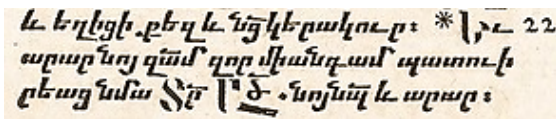 և եղիցի քեզ և նց՟ կերակուր։ * Եւ 22
արար նոյ զա՟մ զոր միանգամ պատուի
րեաց նմա Տր՟ Ած՟ . նոյնպ՟ և արար։